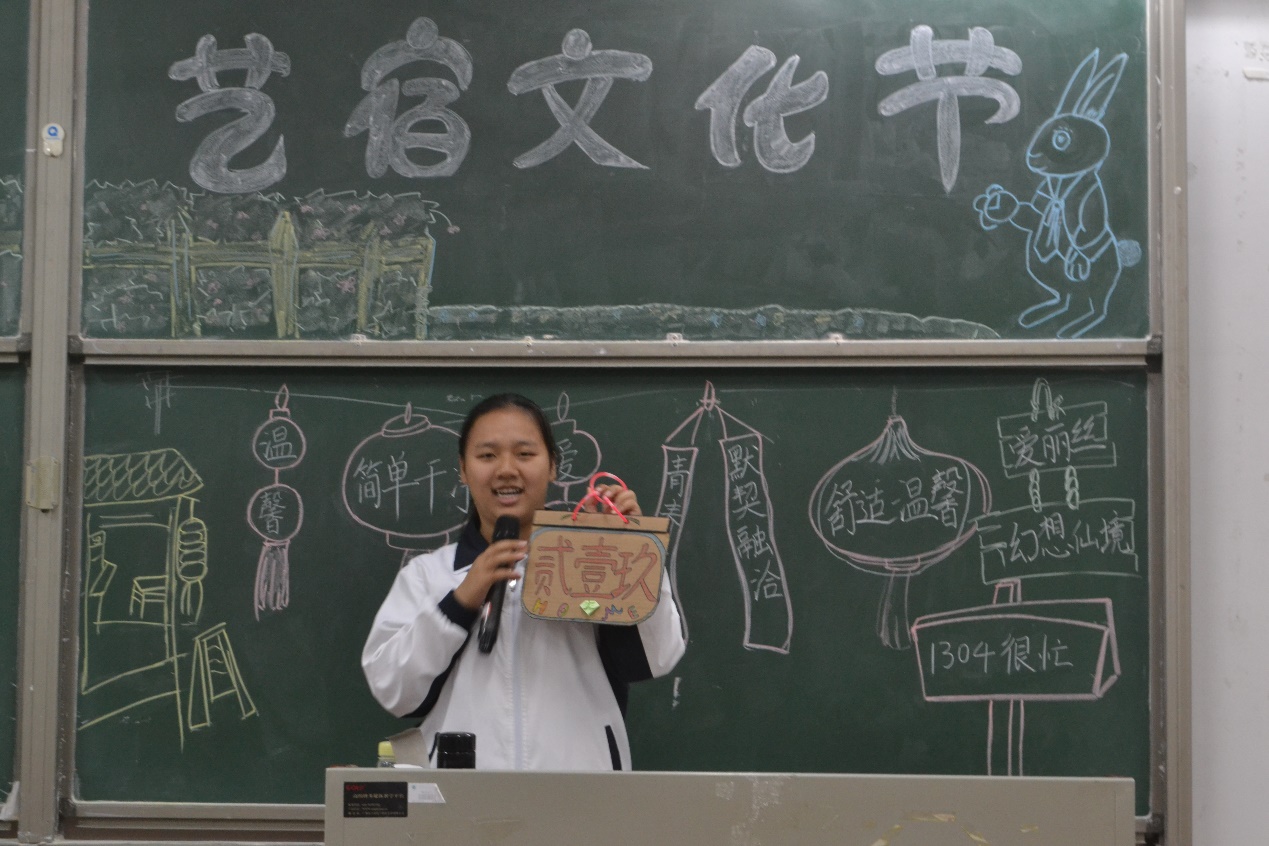 艺宿文化节
温馨
简单干
爱
青春
默契融洽
舒适温馨
爱丽丝
幻想仙境
1304很忙
贰壹玖